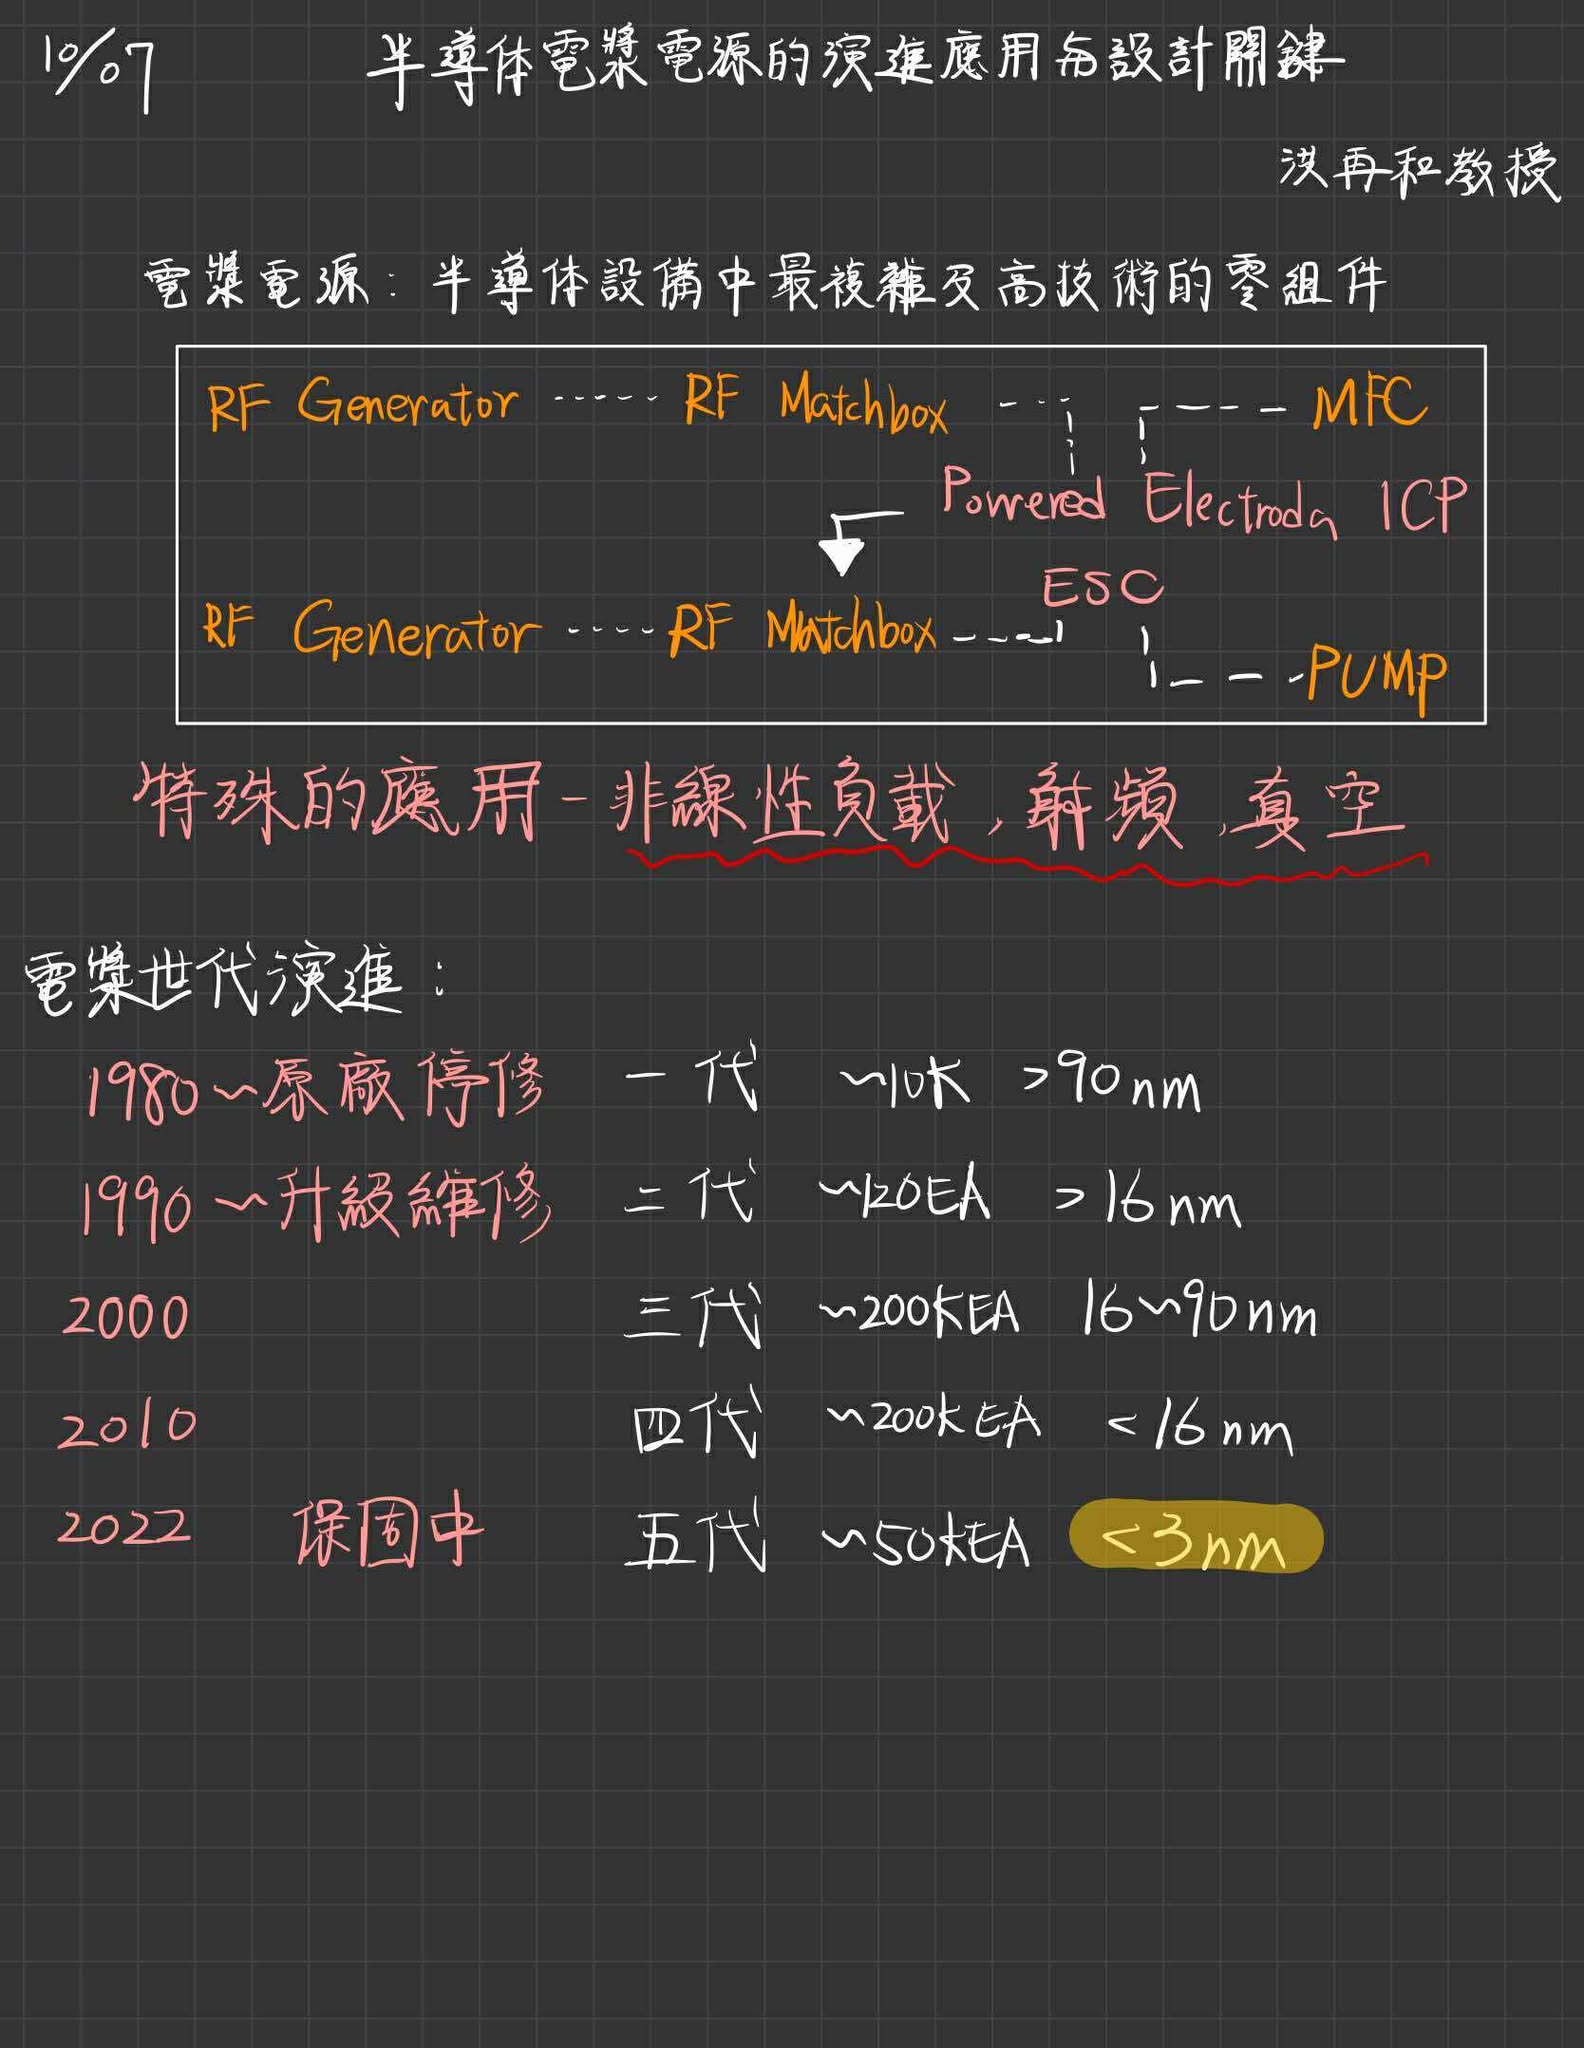 10/07 半導体電漿電源的演進應用与設計關鍵
洪再和教授
電漿電源：半導体設備中最複雜及高技術的零組件
RF Generator ----- RF Matchbox ---- MFC
Powered Electroda ICP
ESC
RF Generator ---- RF Matchbox ---- PUMP
特殊的應用-非線性負載,射頻,真空
電漿世代演進：
1980~原廠停修 一代 ~10K >90nm
1990~升級維修 二代 ~120EA >16nm
2000 三代 ~200KEA 16~90nm
2010 四代 ~200KEA <16nm
2022 保固中 五代 ~50KEA <3nm